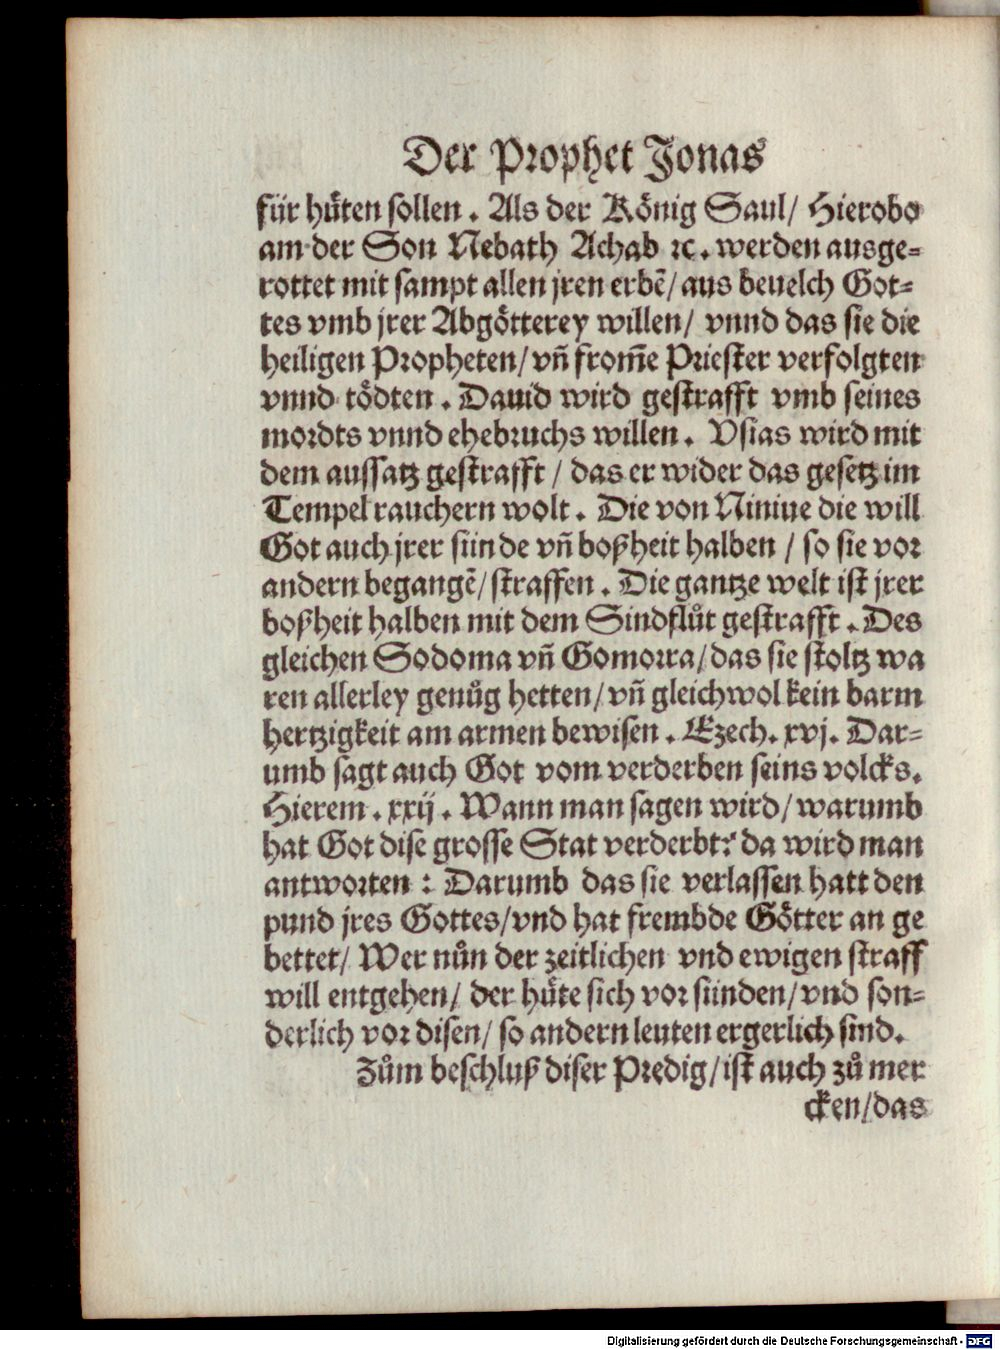 Der Prophet Jonas
für hu̍ten sollen. Als der König Saul/ Hierobo
am der Son Nebath Achab ⁊c. werden ausge-
rottet mit sampt allen jren erbẽ/ aus beuelch Got-
tes vmb jrer Abgötterey willen/ vnnd das sie die
heiligen Propheten/ vñ from̃e Priester verfolgten
vnnd tödten. Dauid wird gestrafft vmb seines
mordts vnnd ehebruchs willen. Vsias wird mit
dem aussatz gestrafft/ das er wider das gesetz im
Tempel rauchern wolt. Die von Niniue die will
Got auch jrer sünde vñ boßheit halben/ so sie vor
andern begangẽ/ straffen. Die gantze welt ist jrer
boßheit halben mit dem Sindflůt gestrafft. Des
gleichen Sodoma vñ Gomorra/ das sie stoltz wa
ren allerley genůg hetten/ vñ gleichwol kein barm
hertzigkeit am armen bewisen. Ezech. xvj. Dar-
umb sagt auch Got vom verderben seins volcks.
Hierem. xxij. Wann man sagen wird/ warumb
hat Got dise grosse Stat verderbt? da wird man
antworten: Darumb das sie verlassen hatt den
pund jres Gottes/ vnd hat frembde Götter an ge
bettet/ Wer nůn der zeitlichen vnd ewigen straff
will entgehen/ der hüte sich vor sünden/ vnd son-
derlich vor disen/ so andern leuten ergerlich sind.
Zům beschluß diser Predig/ ist auch zů mer
cken/ das
Digitalisierung gefördert durch die Deutsche Forschungsgemeinschaft - DFG